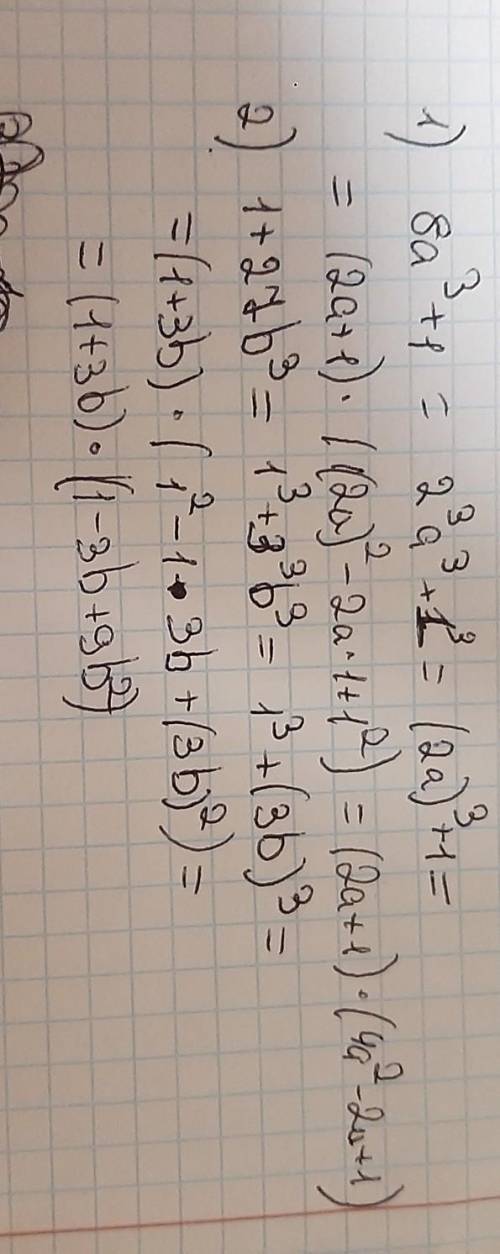 1) 8a³+1 = 2³a³+1³ = (2a)³+1 =
= (2a+1)·((2a)²-2a·1+1²) = (2a+1)·(4a²-2a+1)
2) 1+27b³ = 1³+3³b³ = 1³+(3b)³ =
=(1+3b)·(1²-1·3b+(3b)²) =
= (1+3b)·(1-3b+9b²)